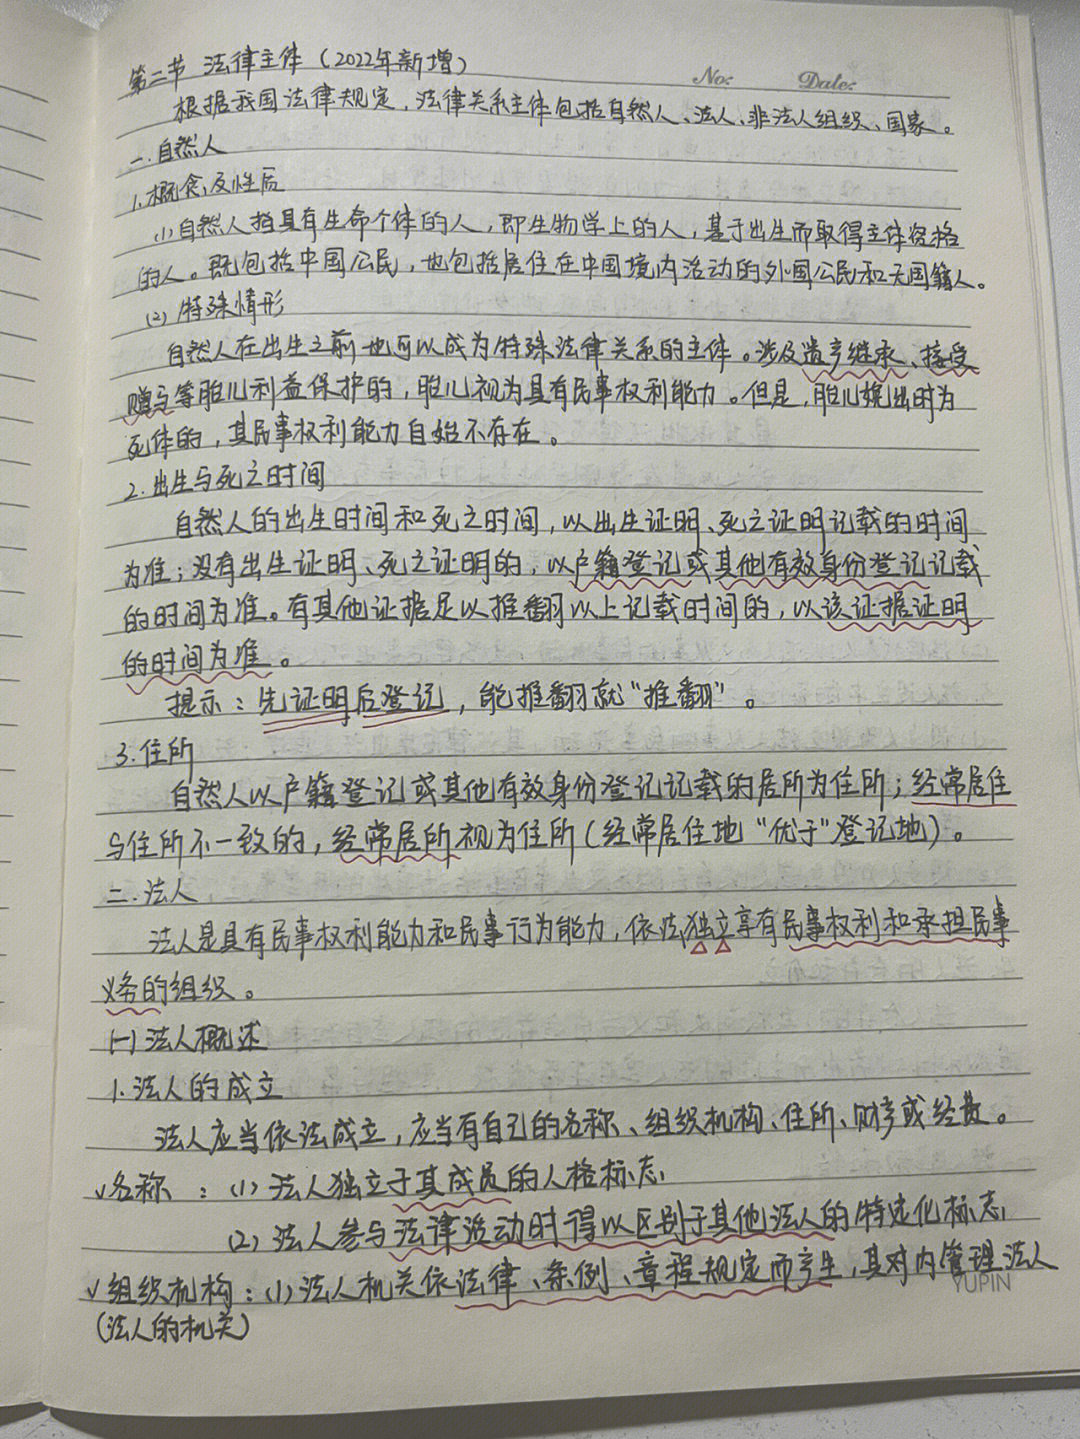 No: Date:
第二节 法律主体（2022年新增）
根据我国法律规定，法律关系主体包括自然人、法人、非法人组织、国家。
一.自然人
1.概念及性质
(1)自然人指具有生命个体的人，即生物学上的人，基于出生而取得主体资格
的人。既包括中国公民，也包括居住在中国境内活动的外国公民和无国籍人。
(2)特殊情形
自然人在出生之前也可以成为特殊法律关系的主体。涉及遗产继承、接受
赠与等胎儿利益保护的，胎儿视为具有民事权利能力。但是，胎儿娩出时为
死体的，其民事权利能力自始不存在。
2.出生与死亡时间
自然人的出生时间和死亡时间，以出生证明、死亡证明记载的时间
为准；没有出生证明、死亡证明的，以户籍登记或其他有效身份登记记载
的时间为准。有其他证据足以推翻以上记载时间的，以该证据证明
的时间为准。
提示：先证明后登记，能推翻就“推翻”。
3.住所
自然人以户籍登记或其他有效身份登记记载的居所为住所；经常居住
与住所不一致的，经常居所视为住所（经常居住地“优于”登记地）。
二.法人
法人是具有民事权利能力和民事行为能力，依法独立享有民事权利和承担民事
义务的组织。
(一)法人概述
1.法人的成立
法人应当依法成立，应当有自己的名称、组织机构、住所、财产或经费。
√名称：(1)法人独立于其成员的人格标志
(2)法人参与法律活动时得以区别于其他法人的特定化标志
√组织机构：(1)法人机关依法律、条例、章程规定而产生，其对内管理法人
(法人的机关)
YUPIN